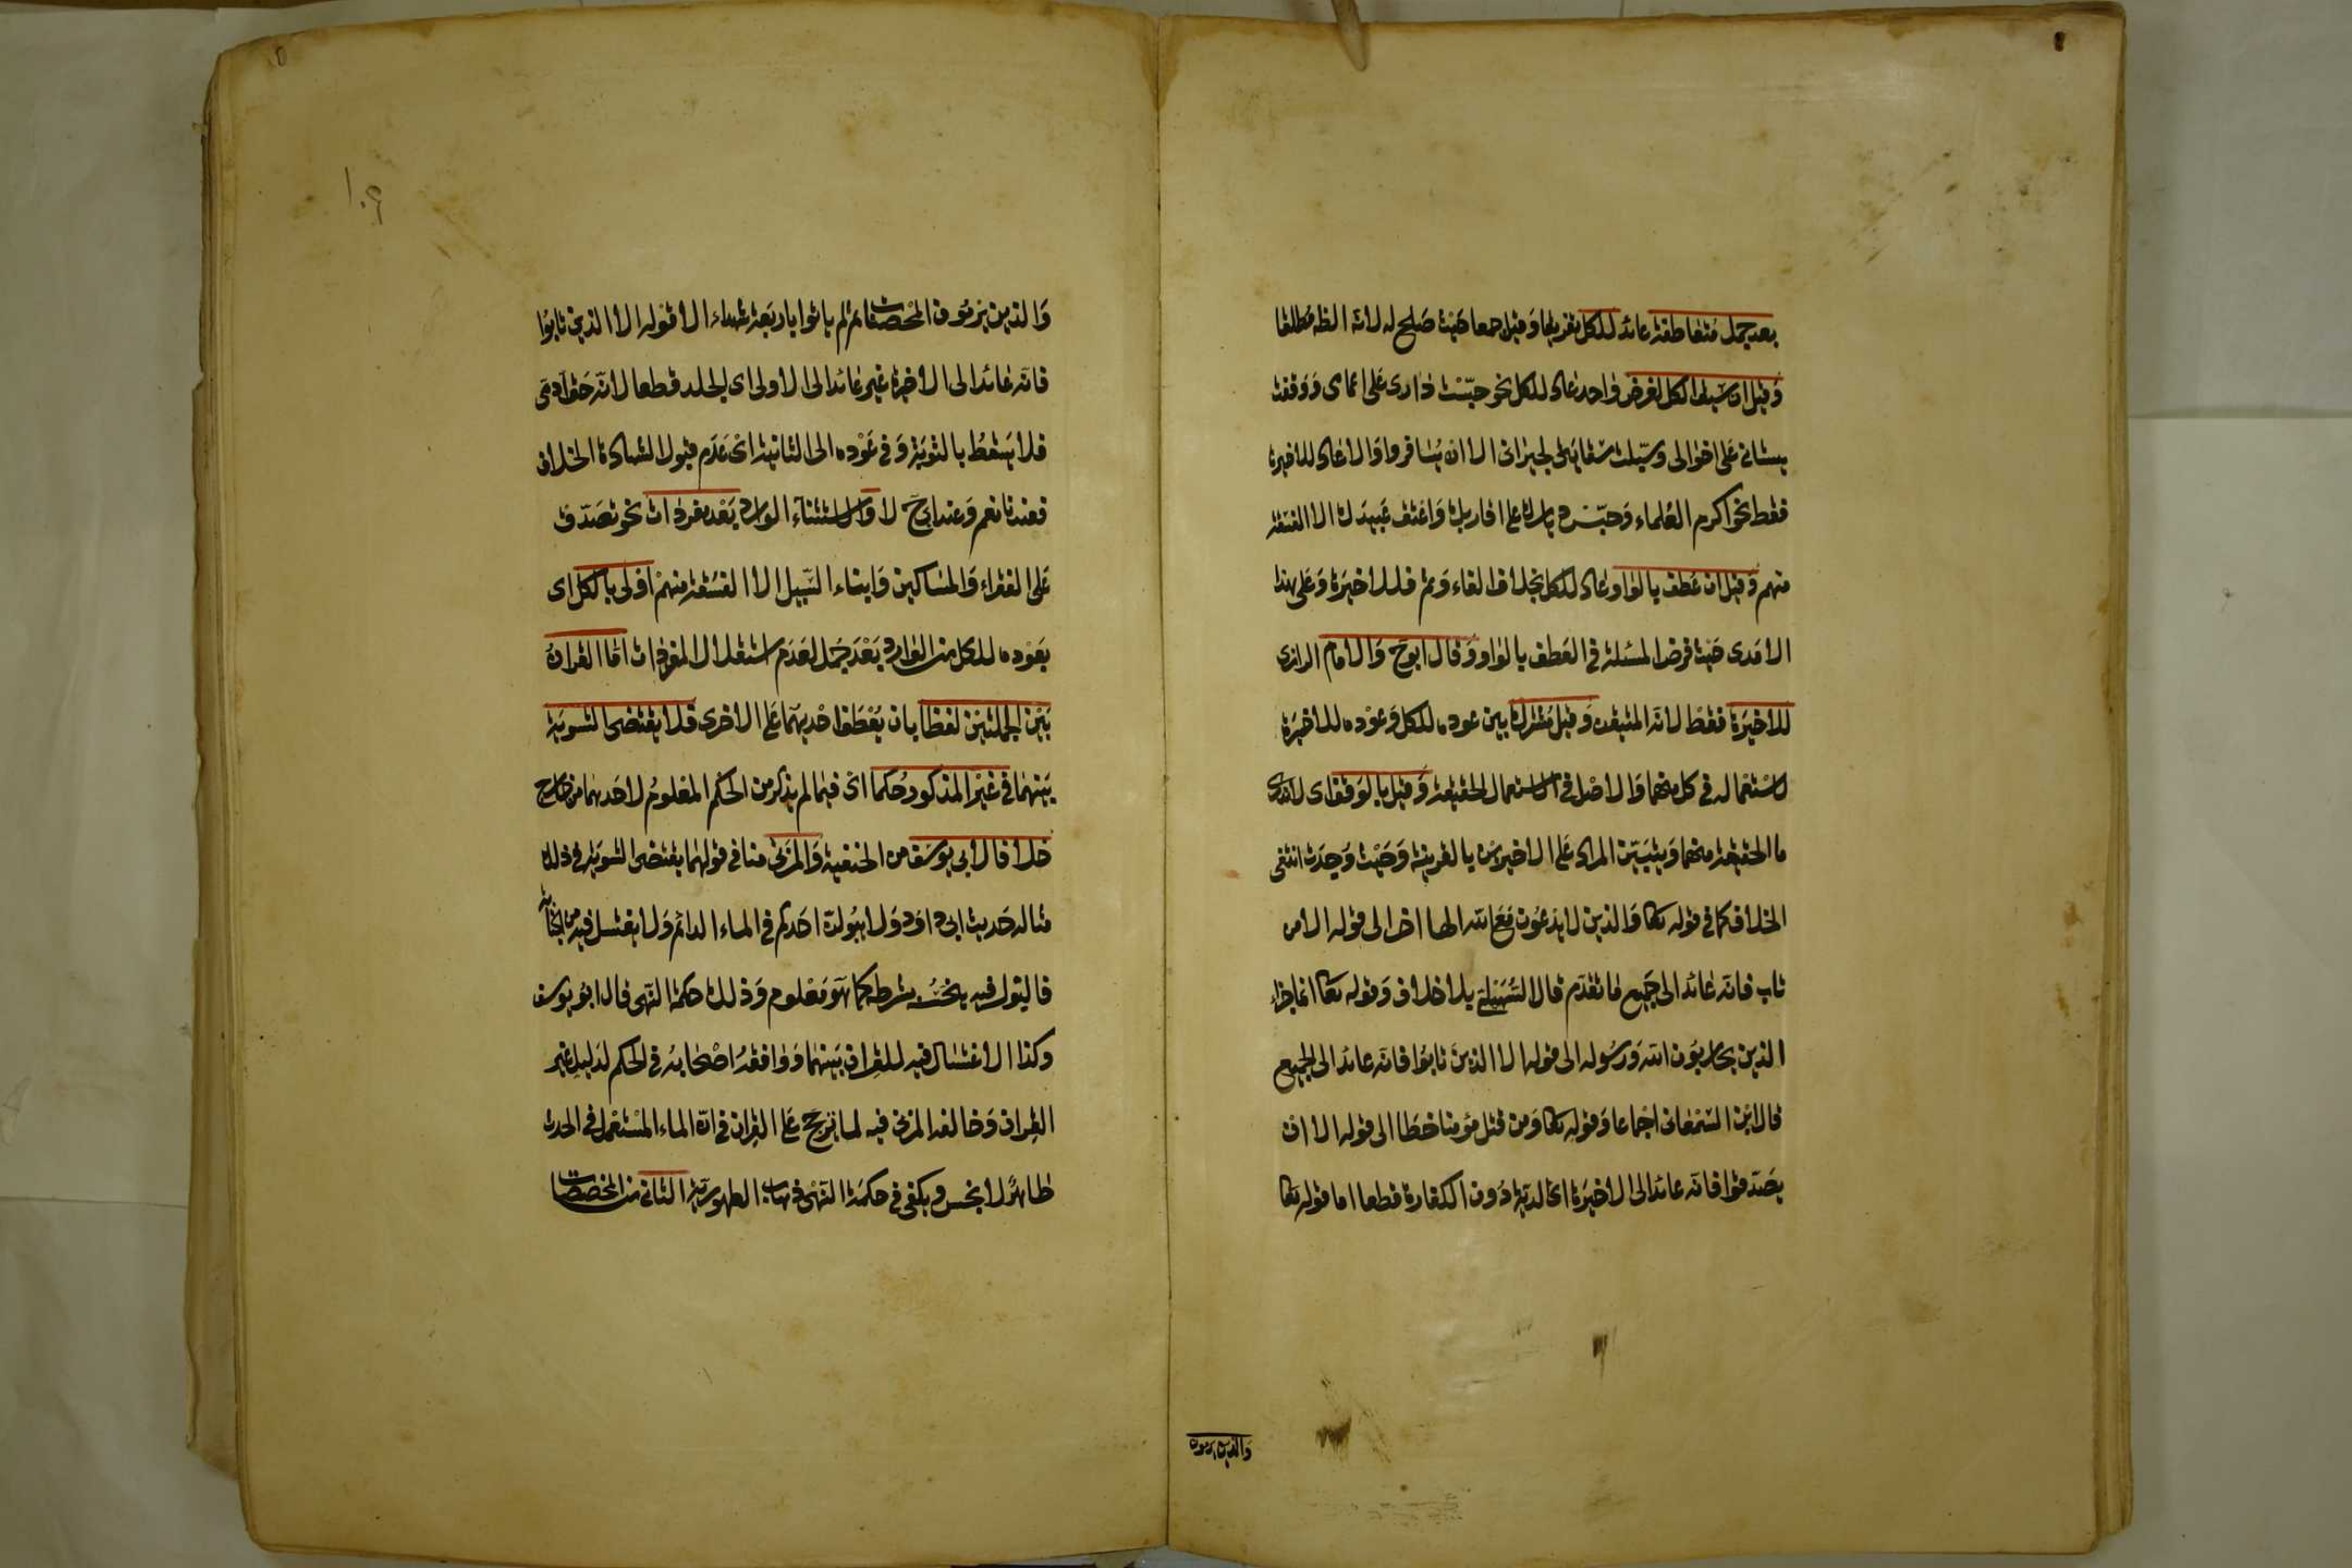 بعد جمل متعاطفة عائد للكل تفريقا وقيل جمعا حيث صلح له لانه الظه مطلقا
وقيل ان سيق الكل لغرض واحد عاد للكل نحو حبست داري على اعمامى ووقفت
بستاني على اخوالى وسبلت سقايتى لجيرانى الا ان يسافروا والا عاد للاخيرة
فقط نحو اكرم العلماء وحبس ديارك على اقاربك واعتق عبيدك الا الفسقة
منهم وقيل ان عطف بالواو عاد للكل بخلاف الفاء وثم فللاخيرة وعلى هذا
الامدى حيث فرض المسئلة فى العطف بالواو وقال ابوح والامام الرازى
للاخيرة فقط لانه المتيقن وقيل مشترك بين عوده للكل وعوده للاخيرة
لاستعماله فى كل منهما والاصل فى الاستعمال الحقيقة وقيل بالوقف اى لا ندرى
ما الحقيقة منهما ويتبين المراد على الاخيرين بالقرينة وحيث وجدت انتفى
الخلاف كما فى قوله تعا والذين لا يدعون مع الله الها اخر الى قوله الا من
تاب فانه عائد الى جميع ما تقدم قال السهيلى بلا خلاف وقوله تعا انما جزاء
الذين يحاربون الله ورسوله الى قوله الا الذين تابوا فانه عائد الى الجميع
قال ابن السمعانى اجماعا وقوله تعا ومن قتل مؤمنا خطا الى قوله الا ان
يصدقوا فانه عائد الى الاخيرة اى الدية دون الكفارة قطعا اما قوله تعا
والذين يرمون
١٠٩
والذين يرمون المحصنات ثم لم ياتوا باربعة شهداء الا قوله الا الذين تابوا
فانه عائد الى الاخيرة غير عائد الى الاولى اى الجلد قطعا لانه حق آدمى
فلا يسقط بالتوبة وفى عوده الى الثانية اى عدم قبول الشهادة الخلاف
فعندنا نعم وعند ابى ح لا والاستثناء الوارد بعد مفردات نحو تصدق
على الفقراء والمساكين وابناء السبيل الا الفسقة منهم اولى بالكل اى
بعوده للكل من الوارد بعد جمل لعدم استقلال المفردات اما القران
بين الجملتين لفظا بان يعطف احديهما على الاخرى فلا يقتضى التسوية
بينهما فى غير المذكور حكما اى فيما لم يذكر من الحكم المعلوم لاحديهما من خارج
خلافا لابى يوسف من الحنفية والمزنى منا فى قولهما يقتضى التسوية فى ذلك
مثاله حديث ابى داود ولا يبولن احدكم فى الماء الدائم ولا يغتسل فيه من الجنابة
فالبول فيه ينجسه بشرطه كما هو معلوم وذلك حكمة النهى قال ابو يوسف
وكذا الاغتسال فيه للقران بينهما ووافقه اصحابه فى الحكم لدليل غير
القران وخالفه المزنى فيه لما ترجح على القران فى ان الماء المستعمل فى الحدث
طاهر لا نجس ويكفى فى حكمة النهى ذهاب الطهورية الثانى من المخصصات